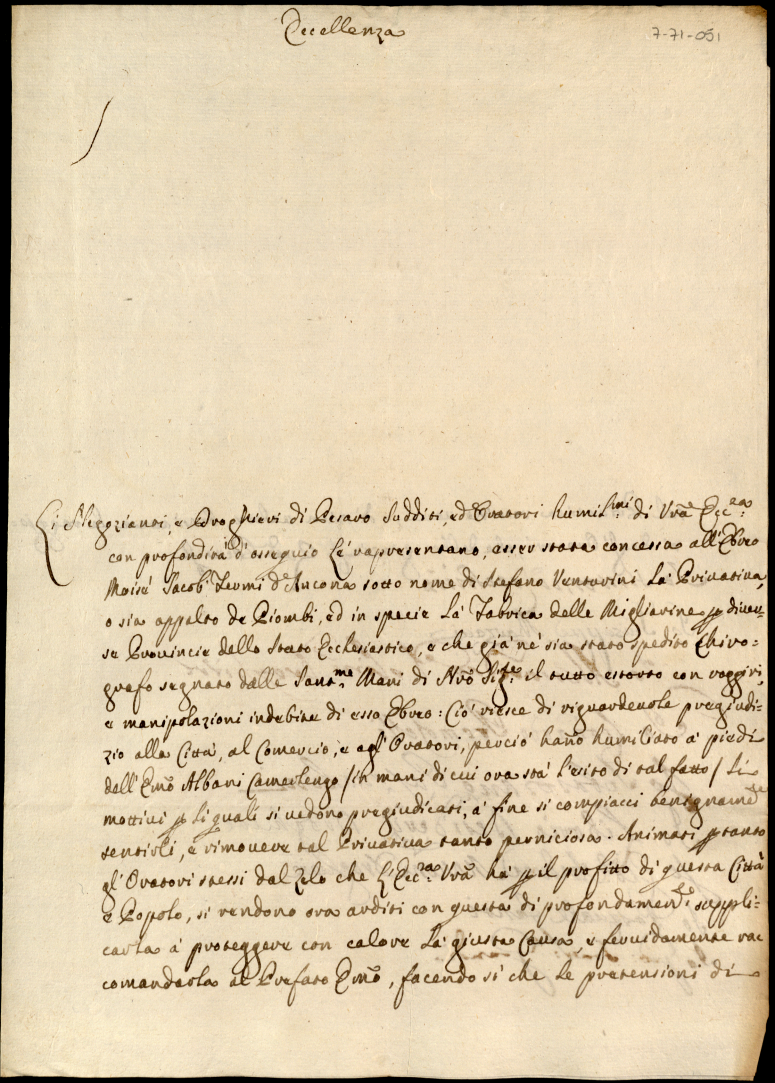 Eccellenza
7-71-051
Li Negozianti, e Droghieri di Pesaro Sudditi, ed Oratori humil.mi di Vrã Ecc.za
con profondità d'ossequio Le rapresentano, esser stata concessa all'Ebreo
Moisè Jacob Fermi d'Ancona sotto nome di Stefano Venturini La Privativa,
o sia appalto de Piombi, ed in specie La Fabrica delle Migliarine p diver-
se Provincie dello Stato Ecclesiastico, e che già ne sia stato spedito Chiro=
grafo segnato dalle Sant.me Mani di Nrõ Sig.re il tutto estorto con raggiri,
e manipolazioni indebite di esso Ebreo: Ciò riesce di riguardevole pregiudi=
zio alla Città, al Comercio, e agl'Oratori, perciò hanño humiliato a' piedi
dell'Emõ Albani Camerlengo / in mani di cui ora stà l'esito di tal fatto / Li
mottivi p li quali si vedono pregiudicati, a' fine si compiacci benignam.te
sentirli, e rimovere tal Privativa tanto perniciosa. Animati p tanto
gl'Oratori stessi dal Zelo che l'Ecc.za Vrã hà p il profitto di questa Città
e Popolo, si rendono ora arditi con questa di profondamen.te suppli=
carla a' proteggere con calore La giusta Causa, e fervidamente rac
comandarla al Prefato Emõ, facendo sì che le pretensioni di